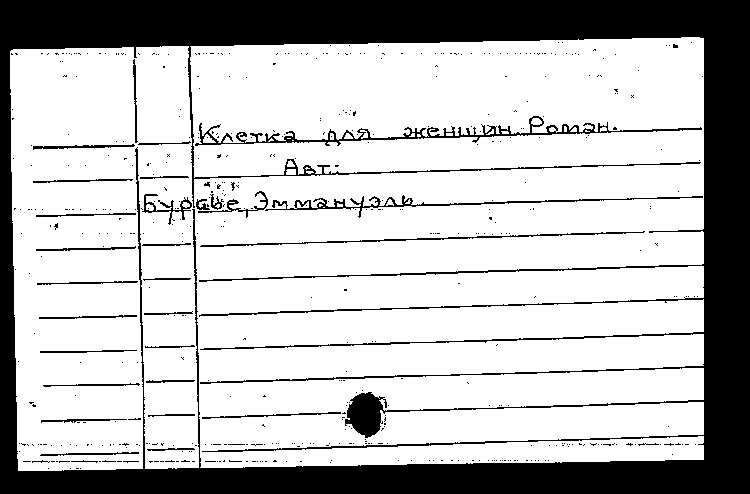 Клетка для женщин. Роман.
Авт.:
Бурдье, Эммануэль.